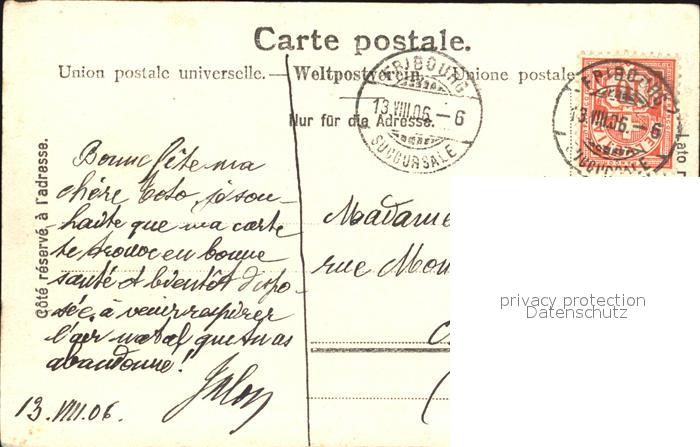 Carte postale.
Union postale universelle. — Weltpostverein. — Unione postale
Nur für die Adresse.
Côté réservé à l'adresse.
Lato r
FRIBOURG
13.VIII.06.–6
SUCCURSALE
FRIBOURG
13.VIII.06.–6
SUCCURSALE
Bonne fête ma
chère Toto, je sou-
haite que ma carte
te trouve en bonne
santé et bientôt dispo-
sée à venir respirer
l'air natal que tu as
abandonné!
13.VIII.06.
Madame
rue Mou
privacy protection
Datenschutz